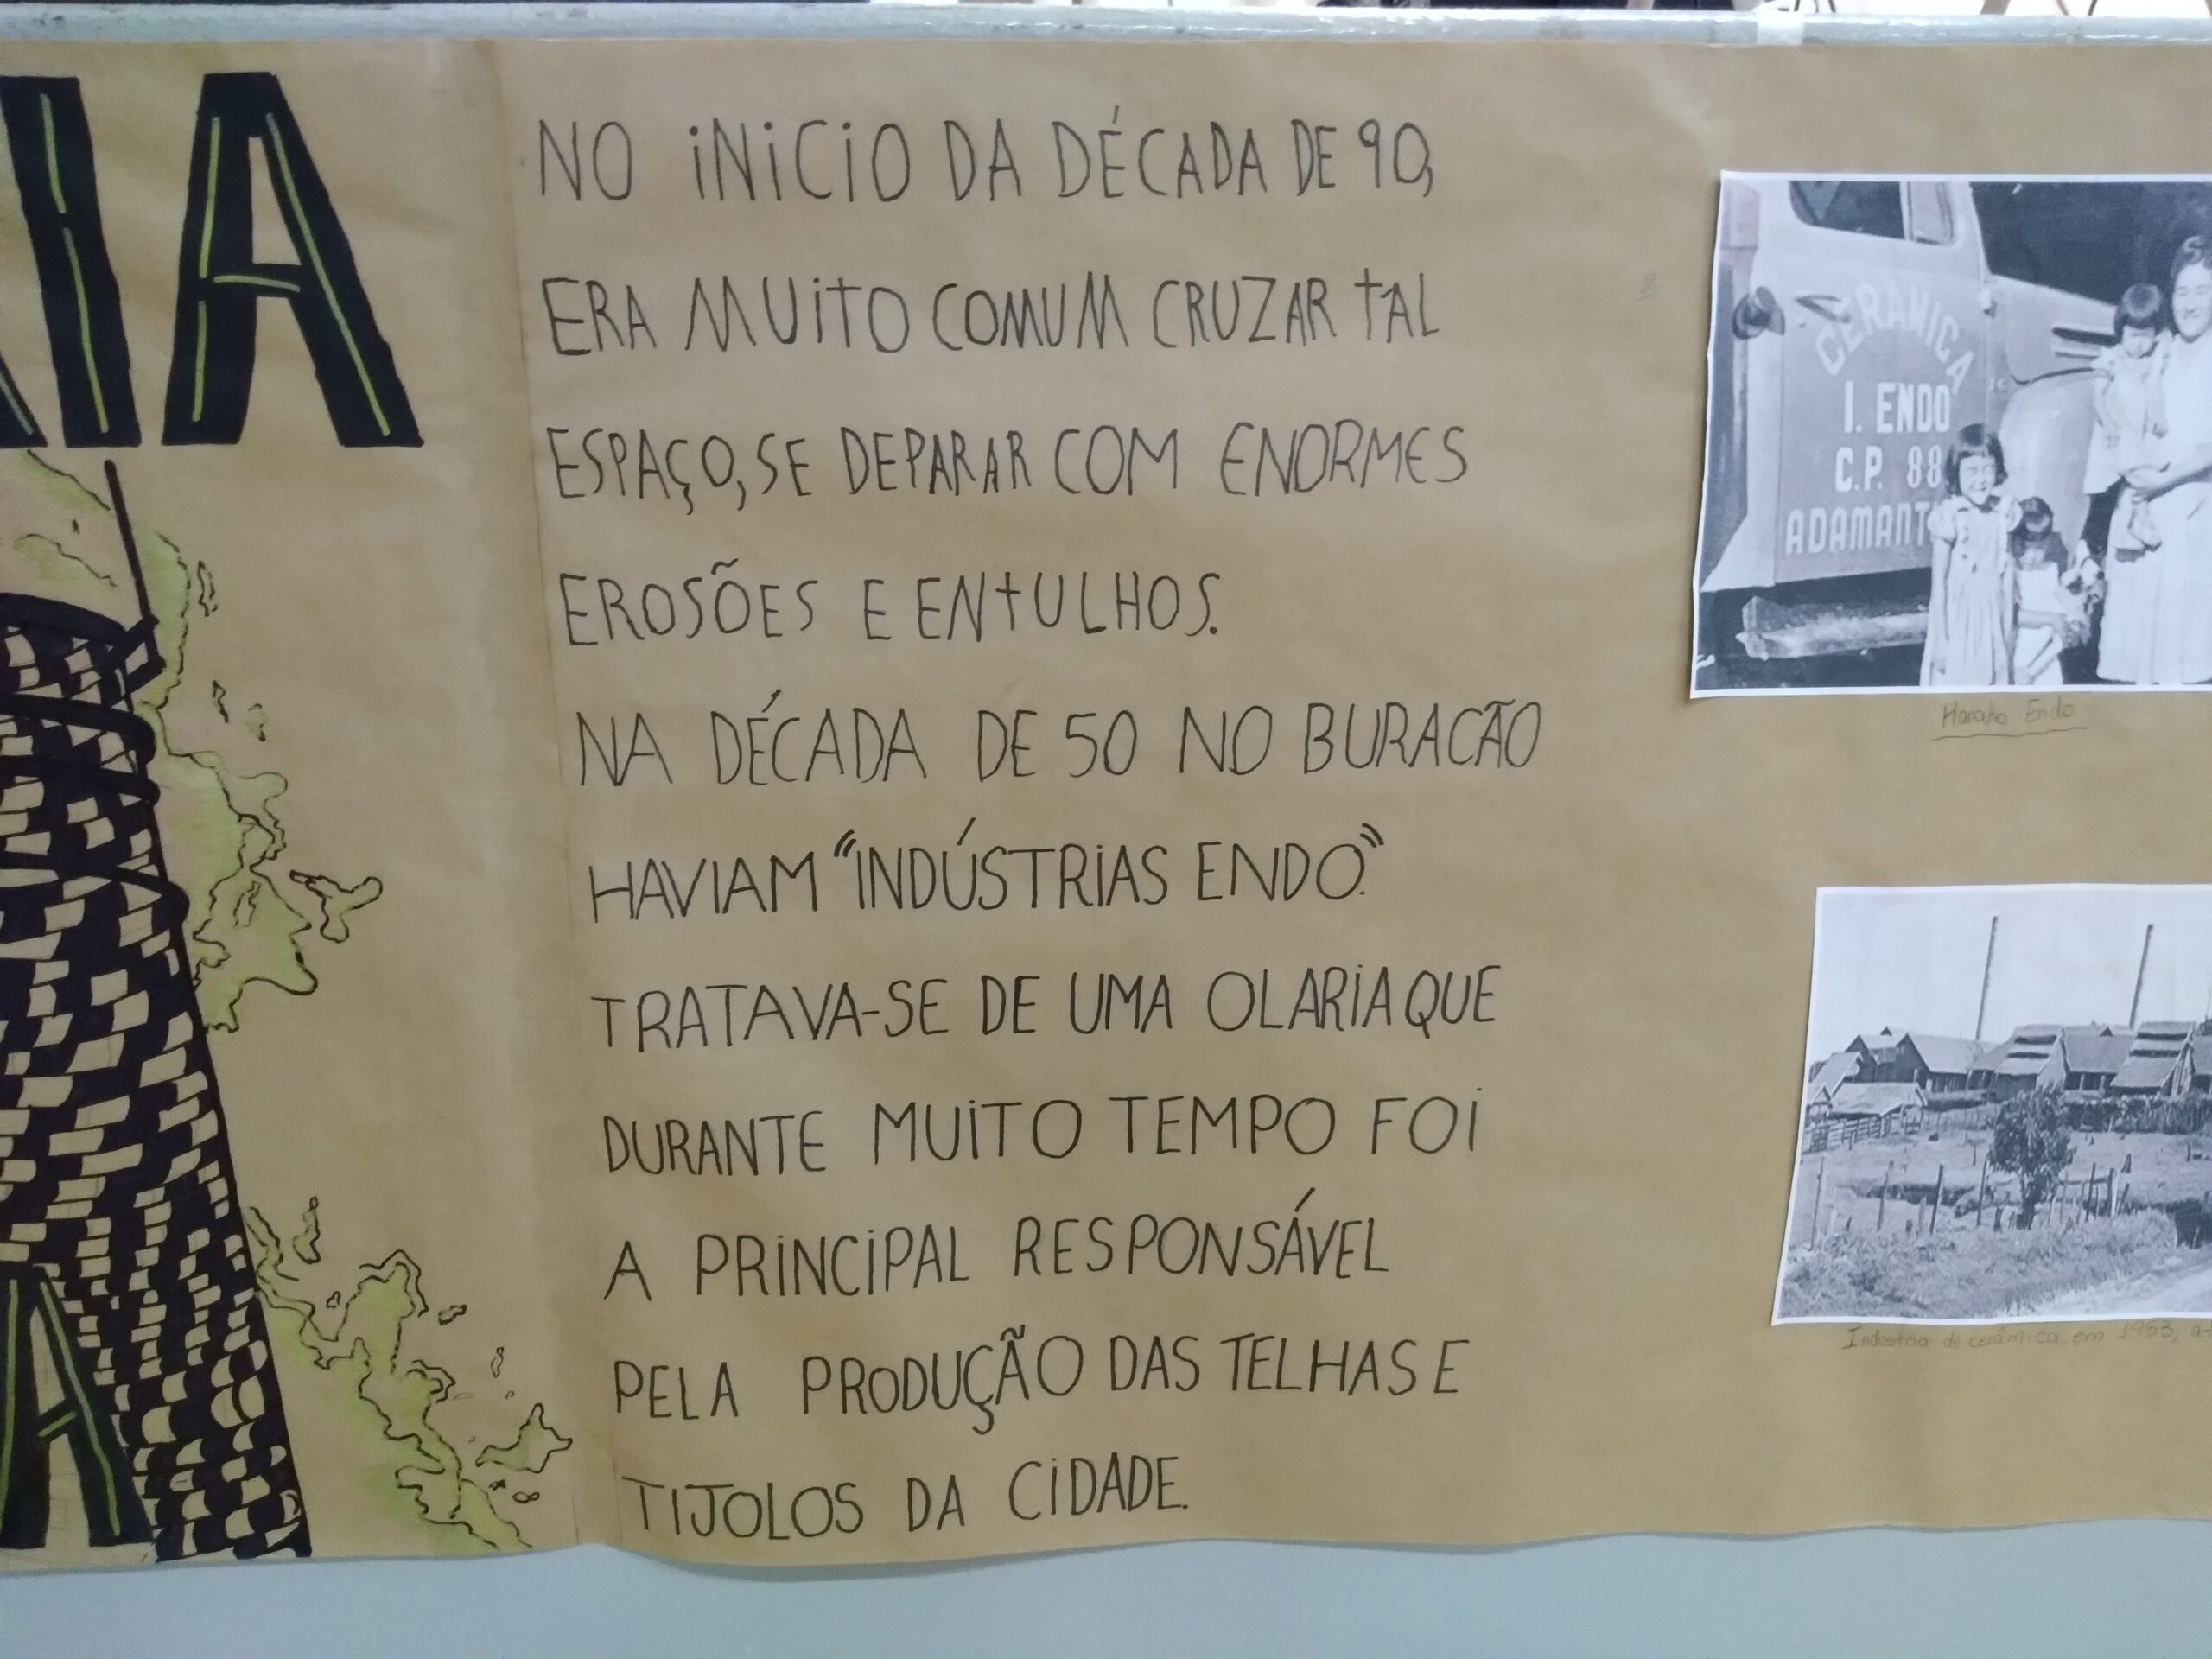 IA
NO INICIO DA DÉCADA DE 90,
ERA MUITO COMUM CRUZAR TAL
ESPAÇO, SE DEPARAR COM ENORMES
EROSÕES E ENTULHOS.
NA DÉCADA DE 50 NO BURACÃO
HAVIAM "INDÚSTRIAS ENDO."
TRATAVA-SE DE UMA OLARIA QUE
DURANTE MUITO TEMPO FOI
A PRINCIPAL RESPONSÁVEL
PELA PRODUÇÃO DAS TELHAS E
TIJOLOS DA CIDADE.
A
CERAMICA
I. ENDO
C.P. 88
ADAMANT
Endo
Indústria de cerâmica em 1953,